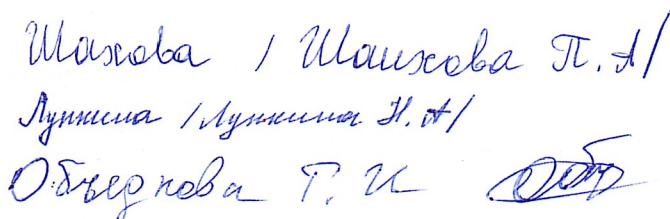 Шахова / Шаихова П.А/
Лункина / Лункина Н.А/
Объедкова Т.И